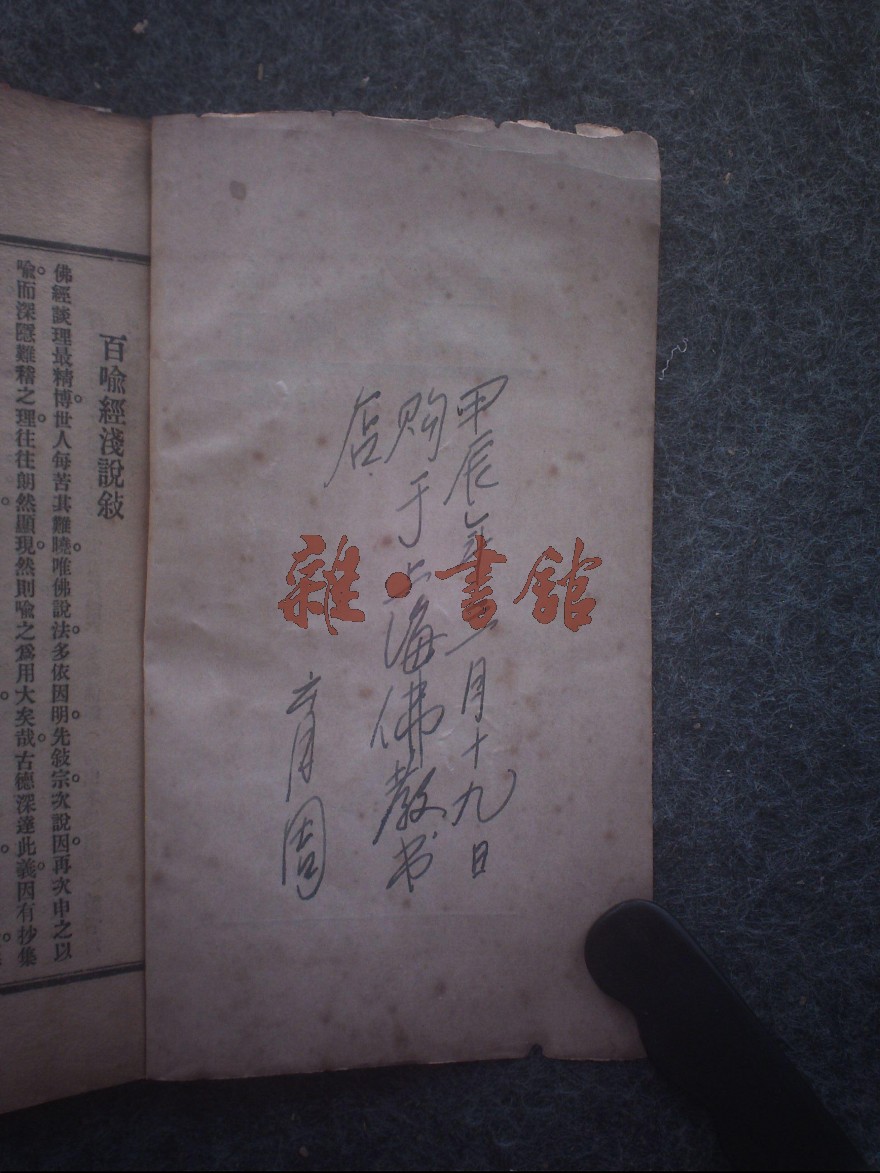 甲辰年二月十九日
购于上海佛教书
店
育周
雜·書館
百喻經淺說敍
佛經談理最精博世人每苦其難曉。唯佛說法。多依因明。先敍宗。次說因。再次申之以
喻。而深隱難稽之理。往往朗然顯現。然則喻之爲用大矣哉。古德深達此義。因有抄集